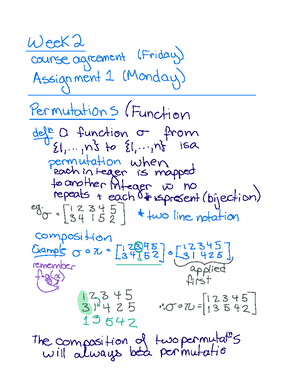 Week 2
course agreement (Friday)
Assignment 1 (Monday)
Permutations (Function
def: a function σ from
{1,...,n} to {1,...,n} is a
permutation when
each integer is mapped
to another integer w no
repeats + each # is present (bijection)
eg. σ = [1 2 3 4 5
3 4 1 5 2] * two line notation
composition
Example σ∘π = [1 2 3 4 5
3 4 1 5 2] ∘ [1 2 3 4 5
3 1 4 2 5]
remember
f(g(x))
applied
first
1 2 3 4 5
3 1 4 2 5
1 3 5 4 2
∴ σ∘π = [1 2 3 4 5
1 3 5 4 2]
The composition of two permutatns
will always be a permutatio